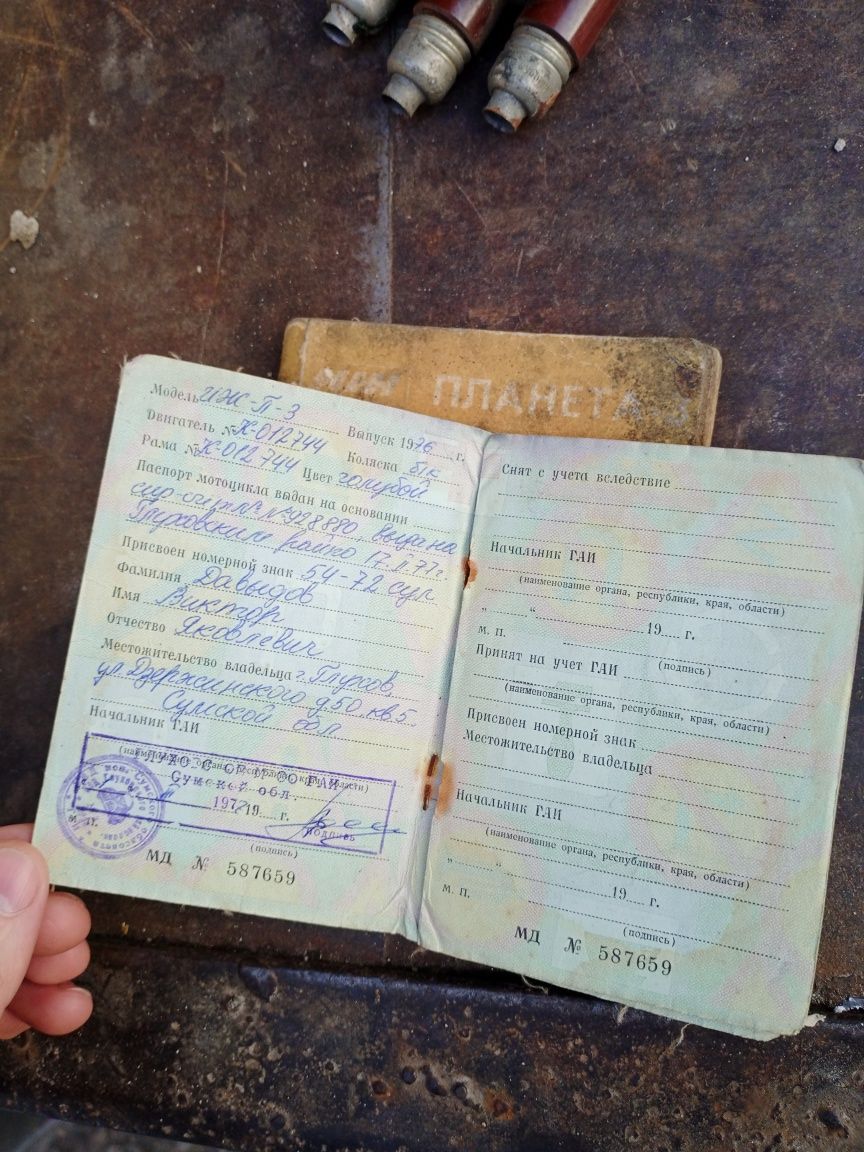 ПЛАНЕТА-3
Модель ИЖ-П-3
Двигатель № К-012744 Выпуск 1976 г.
Рама № К-012744 Коляска б/к
Цвет голубой
Паспорт мотоцикла выдан на основании
спр-счет № 928880, выдана
Глуховским 17.II.77г.
Присвоен номерной знак 54-72 сул
Фамилия Давыдов
Имя Виктор
Отчество Яковлевич
Местожительство владельца г. Глухов,
ул Дзержинского д 50, кв. 5.
Сумской обл
Начальник ГАИ
(наименование органа, республики, края, области)
Сумской обл.
197 19 г.
подпись
М. П.
(подпись)
МД № 587659
Снят с учета вследствие
Начальник ГАИ
(наименование органа, республики, края, области)
„ “ 19 г.
М. П.
(подпись)
Принят на учет ГАИ
(наименование органа, республики, края, области)
Присвоен номерной знак
Местожительство владельца
Начальник ГАИ
(наименование органа, республики, края, области)
„ “ 19 г.
М. П.
(подпись)
МД № 587659